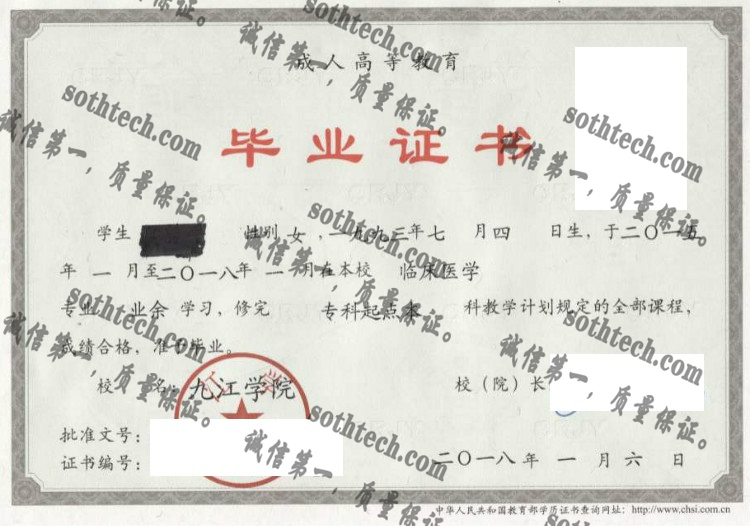 成人高等教育
毕业证书
学生 性别 女 , 一九九三年七 月 四 日生, 于二〇一五
年 一 月至二〇一八年 一 月在本校 临床医学
专业 业余 学习, 修完 专科起点本 科教学计划规定的全部课程,
成绩合格, 准予毕业。
校 名 九江学院 校(院)长
批准文号:
证书编号: 二〇一八年 一 月 六 日
中华人民共和国教育部学历证书查询网址: http://www.chsi.com.cn
sothtech.com
诚信第一，质量保证。
sothtech.com
诚信第一，质量保证。
sothtech.com
诚信第一，质量保证。
sothtech.com
诚信第一，质量保证。
sothtech.com
诚信第一，质量保证。
sothtech.com
诚信第一，质量保证。
sothtech.com
诚信第一，质量保证。